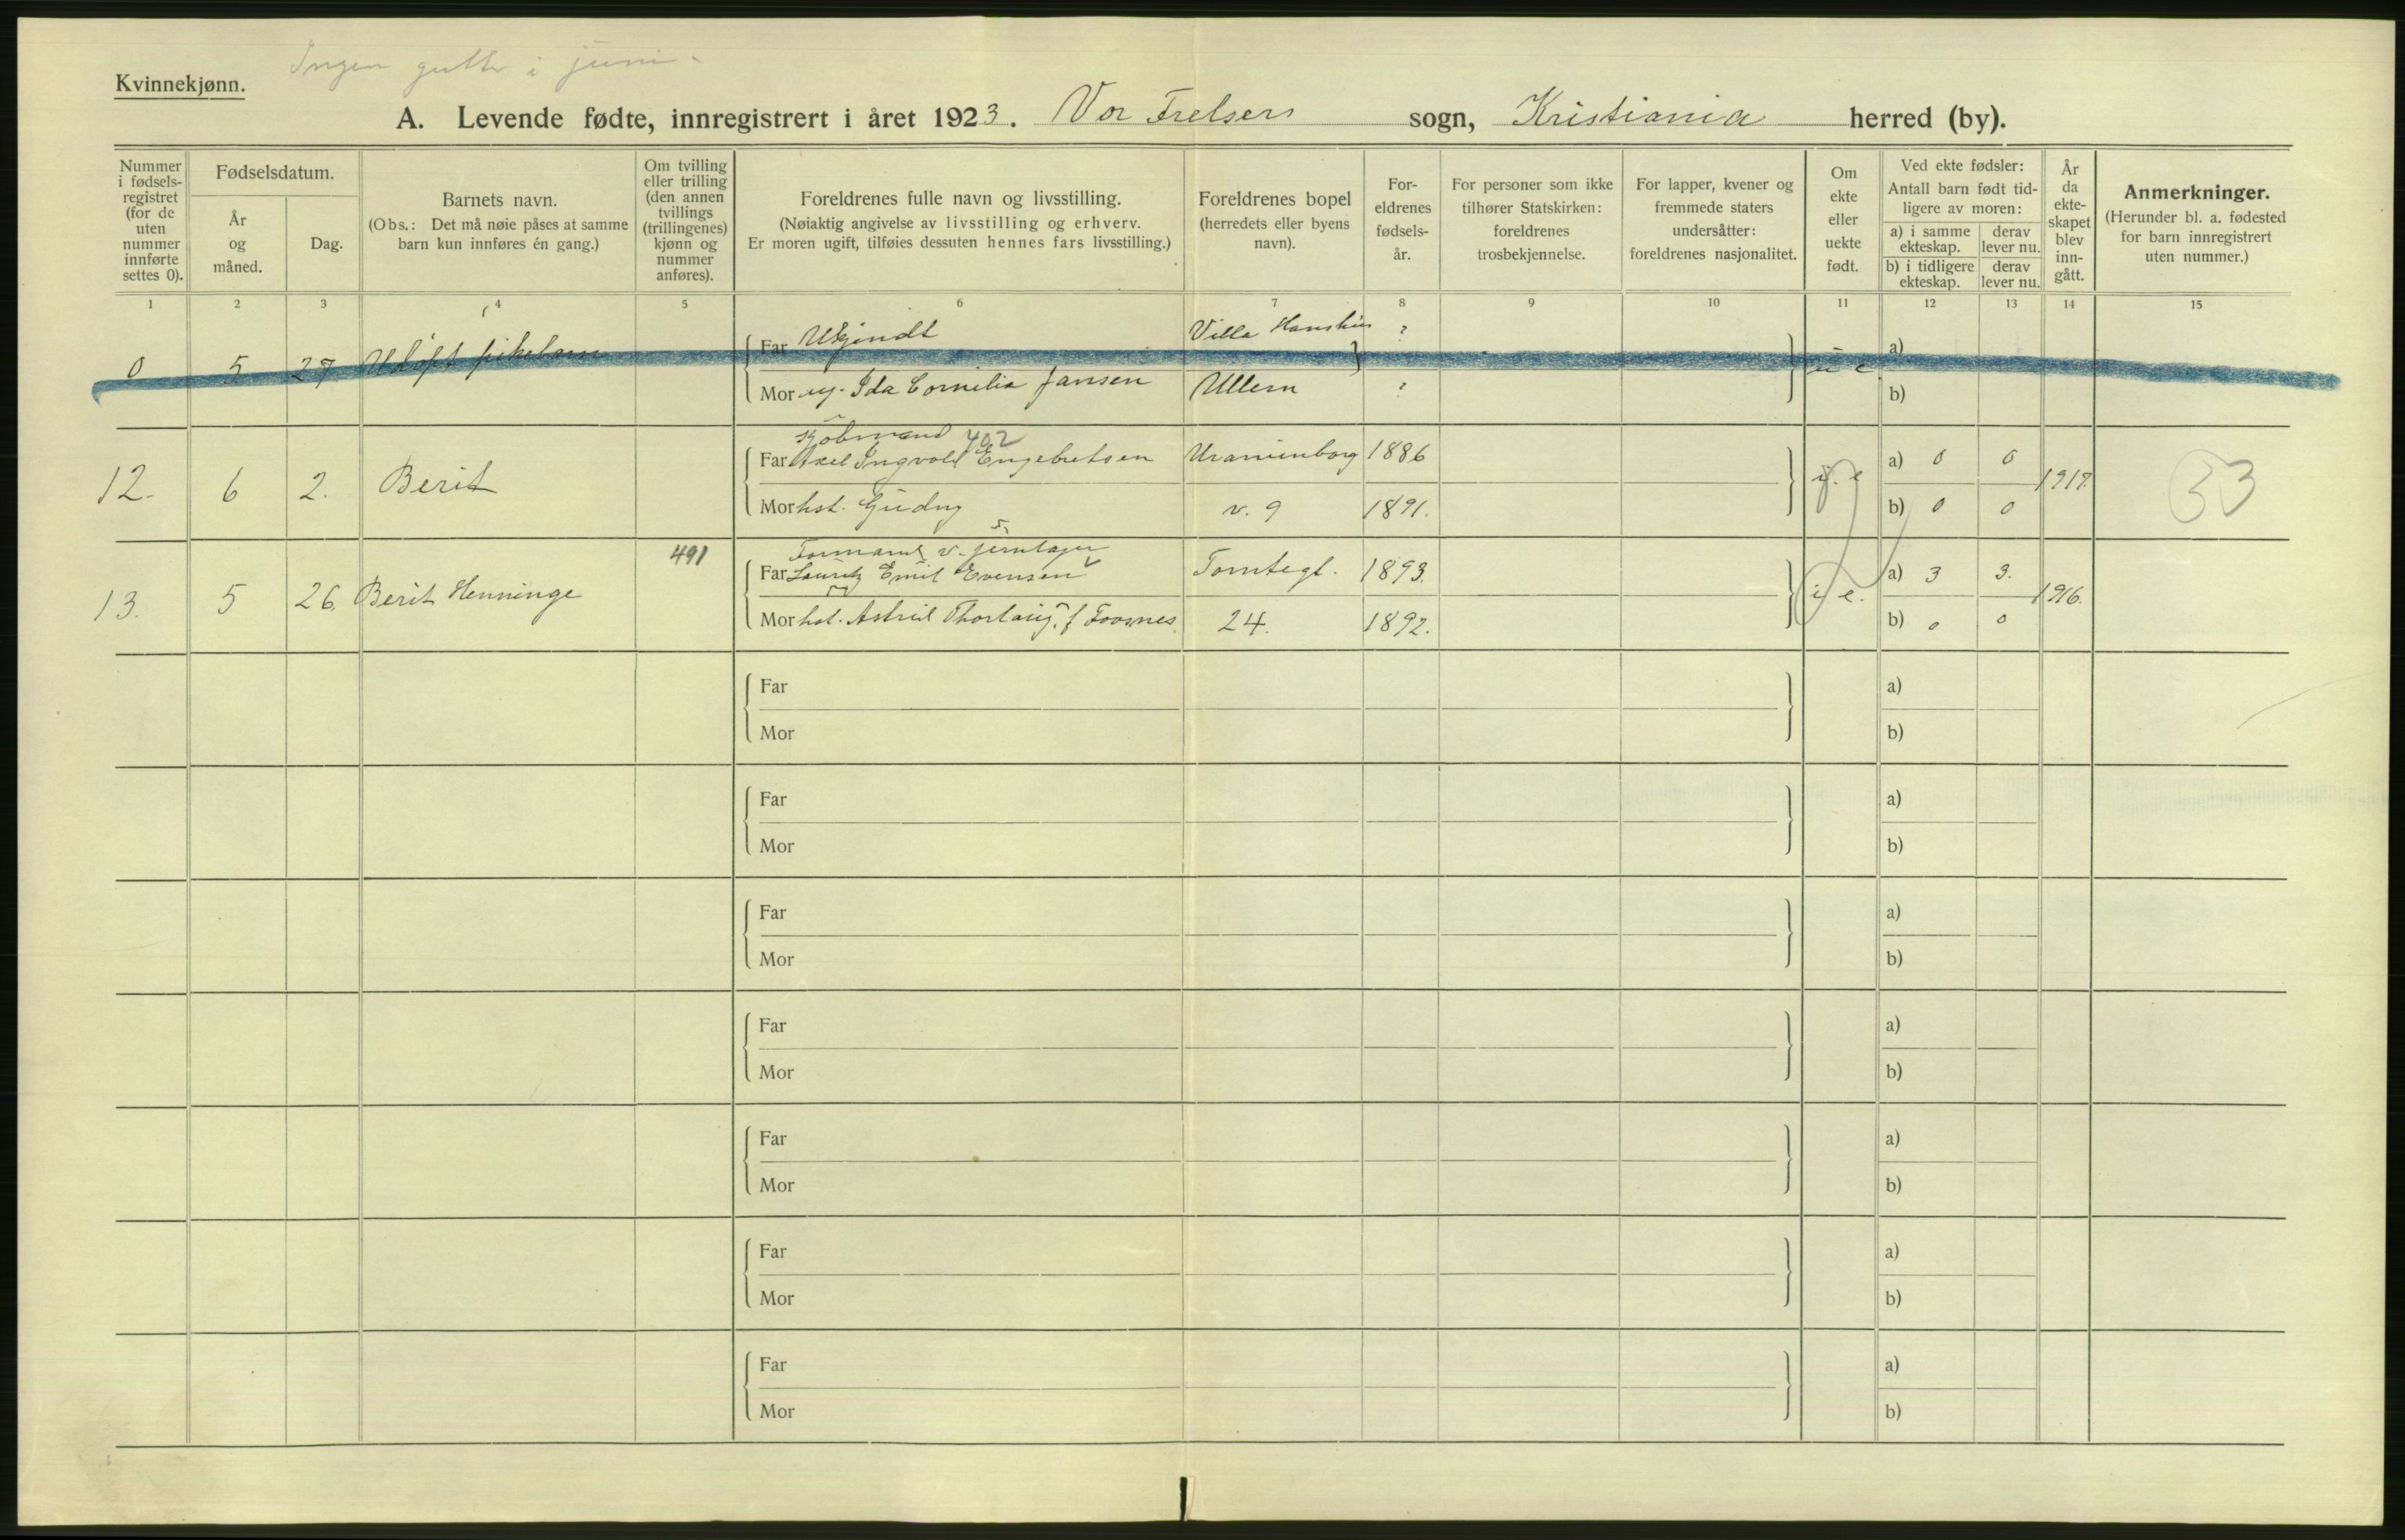 Ingen gutter i juni.
Kvinnekjønn.
A. Levende fødte, innregistrert i året 1923. Vor Frelsers sogn, Kristiania herred (by).
Nummer i fødsels-registret (for de uten nummer innførte settes 0).
Fødselsdatum.
År og måned.
Dag.
Barnets navn.
(Obs.: Det må nøie påses at samme barn kun innføres én gang.)
Om tvilling eller trilling (den annen tvillings (trillingenes) kjønn og nummer anføres).
Foreldrenes fulle navn og livsstilling.
(Nøiaktig angivelse av livsstilling og erhverv.
Er moren ugift, tilføies dessuten hennes fars livsstilling.)
Foreldrenes bopel
(herredets eller byens navn).
For-eldrenes fødsels-år.
For personer som ikke tilhører Statskirken: foreldrenes trosbekjennelse.
For lapper, kvener og fremmede staters undersåtter: foreldrenes nasjonalitet.
Om ekte eller uekte født.
Ved ekte fødsler:
Antall barn født tid-ligere av moren:
a) i samme ekteskap.
derav lever nu.
b) i tidligere ekteskap.
derav lever nu.
År da ekte-skapet blev inn-gått.
Anmerkninger.
(Herunder bl. a. fødested for barn innregistrert uten nummer.)
1 2 3 4 5 6 7 8 9 10 11 12 13 14 15
0 5 27 Udøpt pikebarn Far Ukjendt Villa ? u e a)
Mor ug. Ida Cornelia Jansen Ullern ? b)
Kjøbmand 402
12. 6 2. Berit Far Axel Ingvold Engebretsen Uranienborg 1886 i. e a) 0 0 1919. 33
Mor hst. Gudny v. 9 1891. b) 0 0
491 Formand v. jernlager
13. 5 26. Berit Henninge Far Lauritz Emil Evensen Tomtegt. 1893. i e. a) 3 3. 1916.
Mor hst. Astrid f. Foosnes. 24. 1892. b) 0 0
Far a)
Mor b)
Far a)
Mor b)
Far a)
Mor b)
Far a)
Mor b)
Far a)
Mor b)
Far a)
Mor b)
Far a)
Mor b)